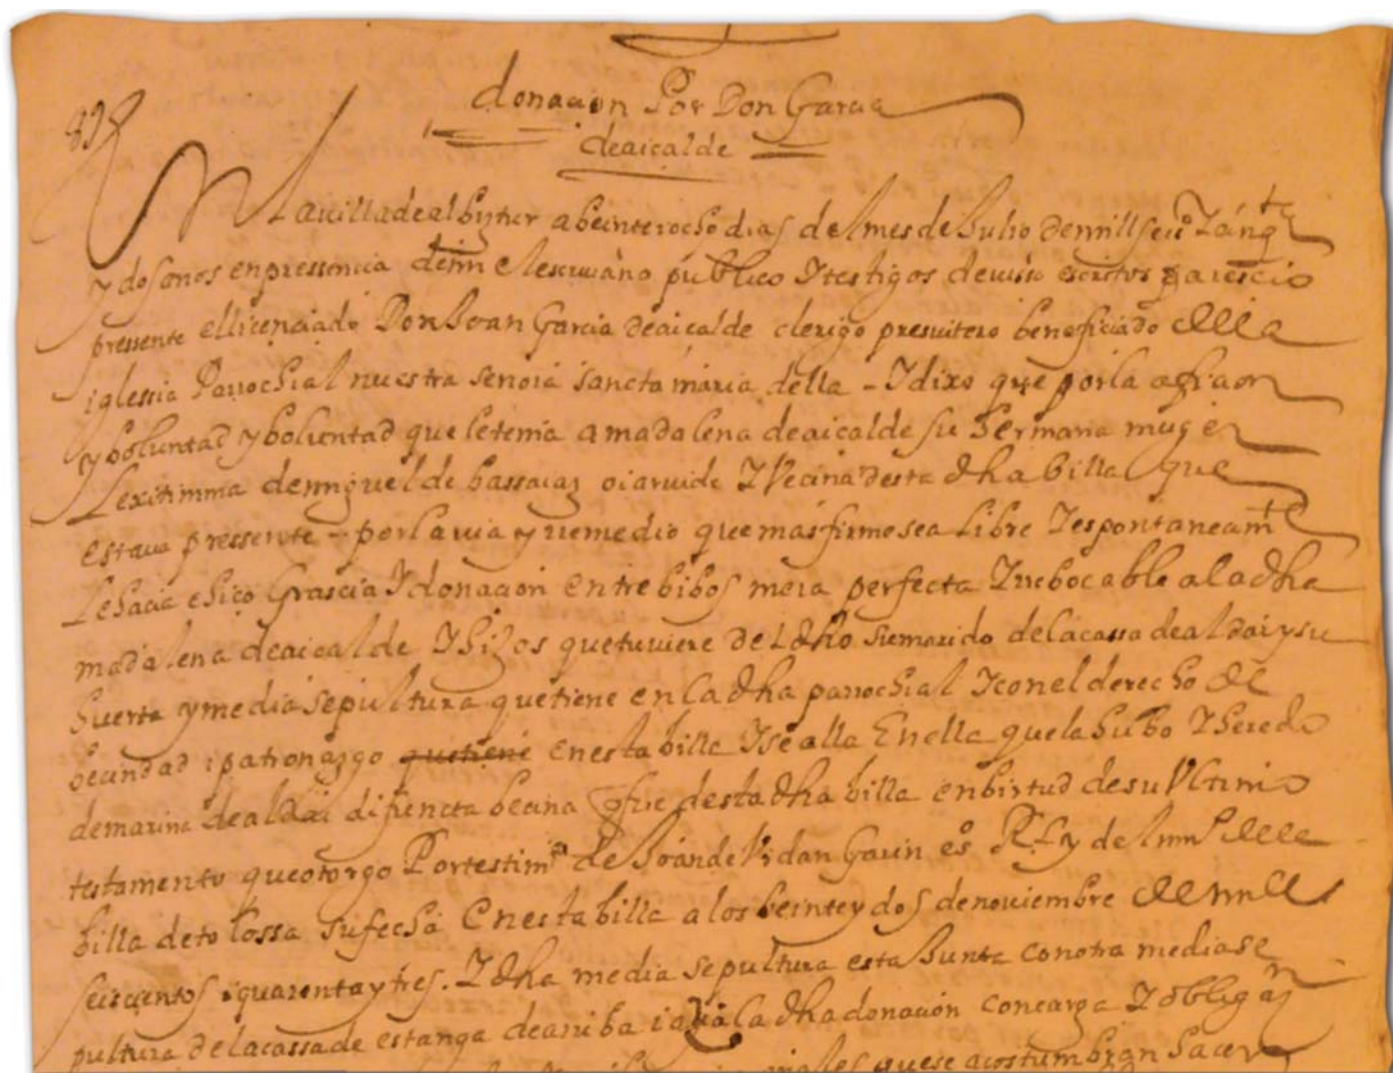 donacion Por Don Garcia
deaicalde
En La villa de albiztur a beinte y ocho dias del mes de Julio de mill seis
y dos anos en pressencia demi el escrivano publico y testigos de iuso escritos parescio
pressente el licenciado Don Joan Garcia de aicalde clerigo presvitero beneficiado della
iglessia Parrochial nuestra senora sancta maria della - Y dixo que por la aficion
y boluntad y boluntad que le tenia a madalena de aicalde su hermana muger
Lexitimma de miguel de bassaeaz oiarvide Y Vecina desta dha billa que
estava pressente - por la via y remedio que mas firme sea Libre Y espontaneamte
Le hacia e hiço Grascia Y donacion entre bibos mera perfecta Y rrebocable a la dha
madalena de aicalde Y hijos que tuviere del dho su marido de la cassa de aldai y su
huerta y media sepultura que tiene en la dha parrochial Y con el derecho de
becindad i patronazgo que tiene en esta billa Y se alla En ella que la hubo Y heredo
de marina de aldai difuncta becina q fue desta dha billa en birtud de su Vltimo
testamento que otorgo Por testimo de Joan de Vidan Garin esno R. y del nuo della
billa de tolossa su fecha En esta billa a los beinte y dos de noviembre de mill
seiscientos i quarenta y tres. Y dha media sepultura esta Junta con otra media se
pultura de la cassa de estanga de arriba i la dha donacion con carga Y obligaon
que se acostumbran hacer